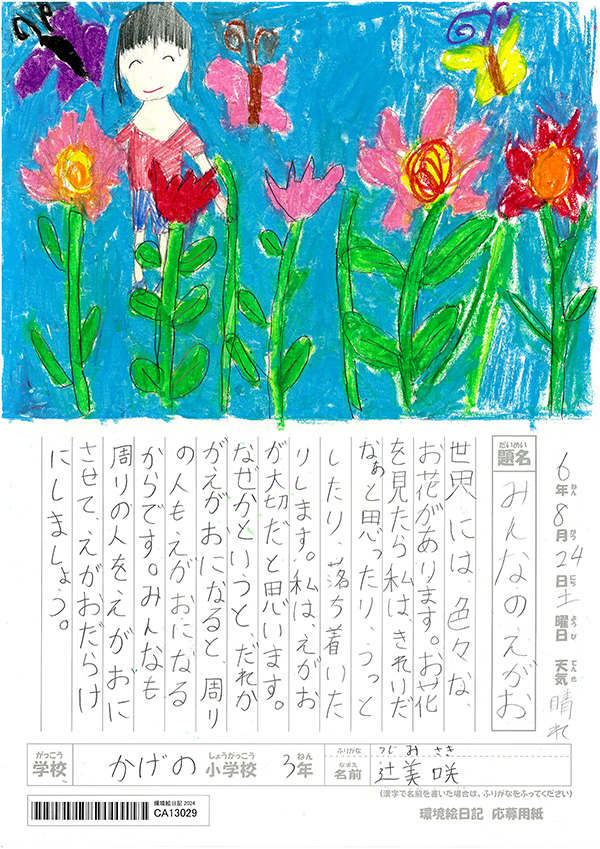 6年8月24日土曜日 天気 晴れ
ねん がつ にち ようび てんき
だいめい
題名
みんなのえがお
世界には、色々な、
お花があります。お花
を見たら私は、きれいだ
なぁと思ったり、うっと
したり、落ち着いた
りします。私は、えがお
が大切だと思います。
なぜかというと、だれか
がえがおになると、周り
の人もえがおになる
からです。みんなも
周りの人をえがおに
させて、えがおだらけ
にしましょう。
がっこう しょうがっこう ねん
学校 かげの 小学校 3年
ふりがな つじ みさき
なまえ
名前 辻 美咲
(漢字で名前を書いた場合は、ふりがなをふってください)
環境絵日記 2024
CA13029
環境絵日記 応募用紙